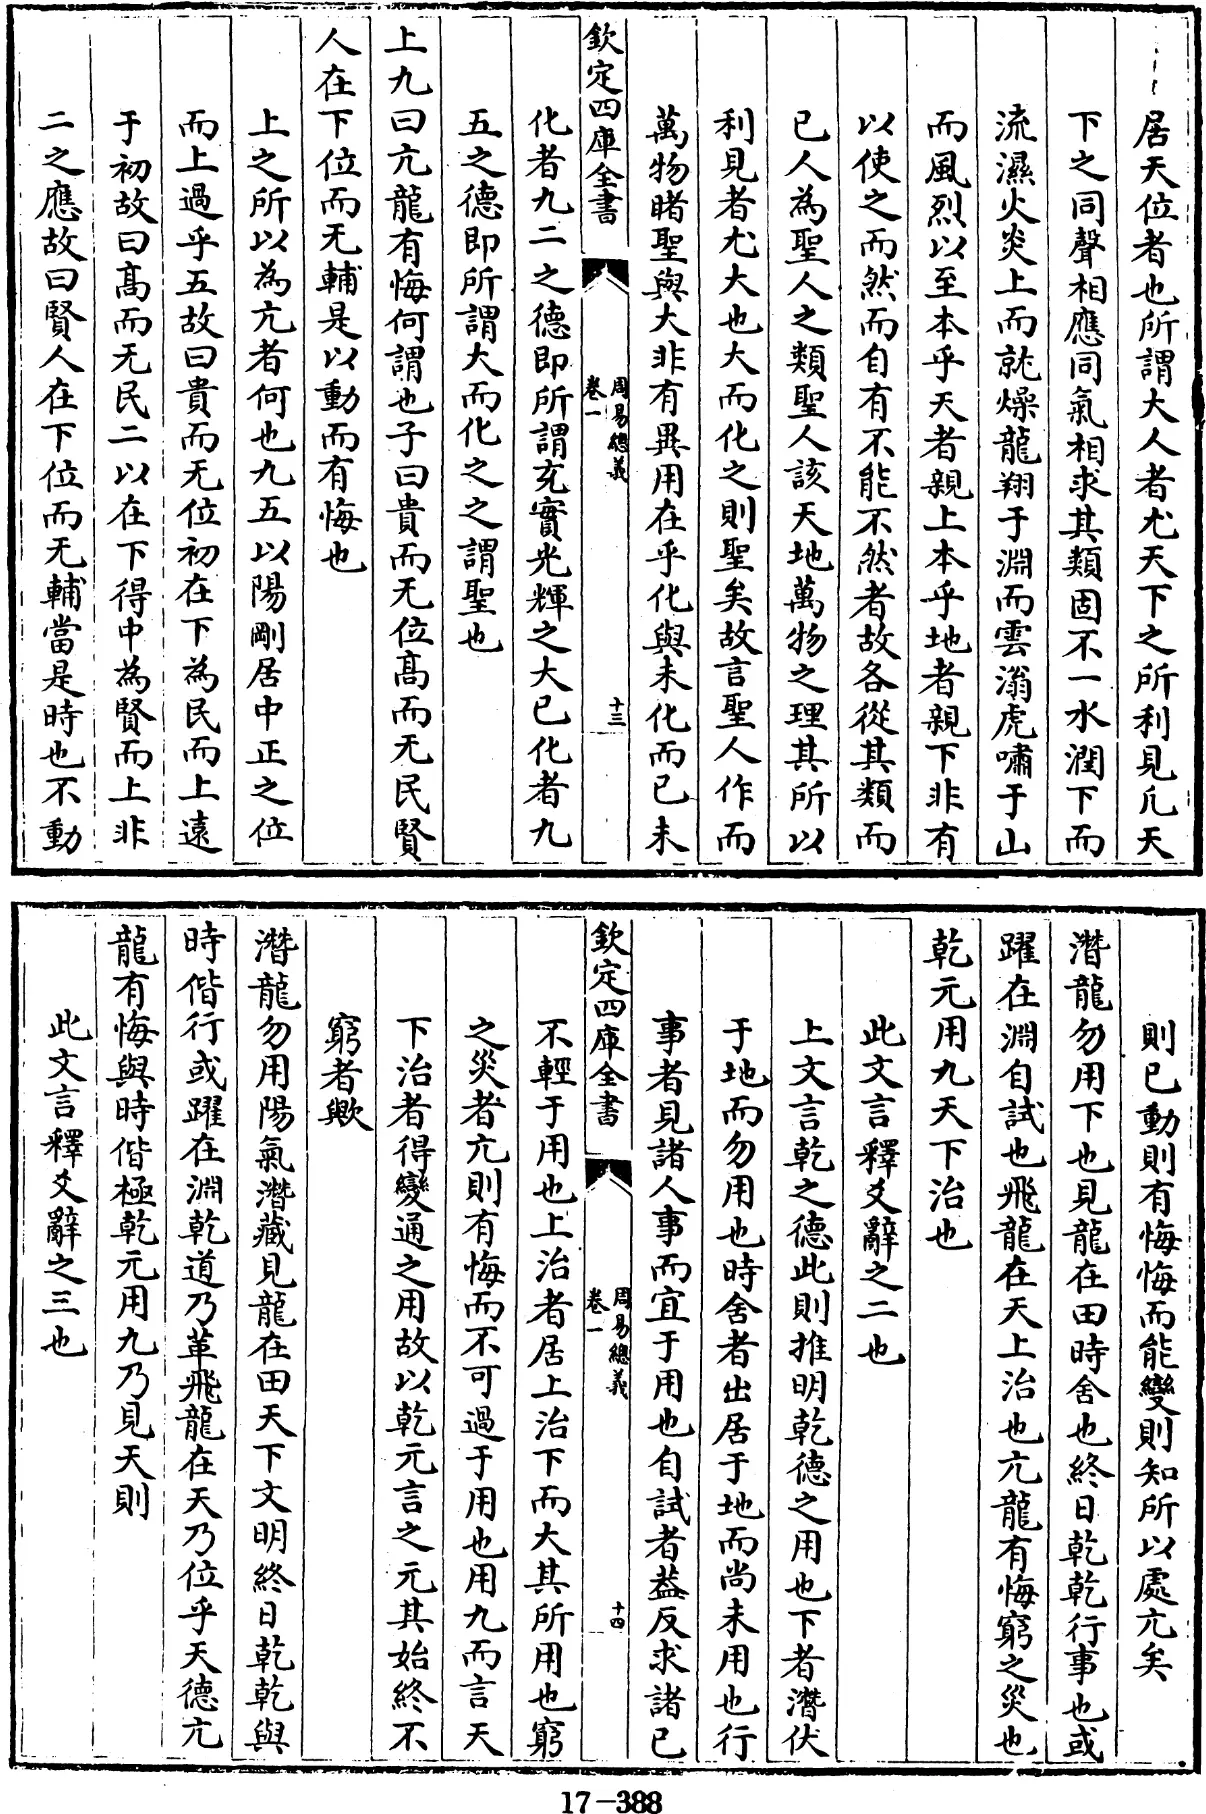 居天位者也所謂大人者尤天下之所利見凡天
下之同聲相應同氣相求其類固不一水潤下而
流濕火炎上而就燥龍翔于淵而雲滃虎嘯于山
而風烈以至本乎天者親上本乎地者親下非有
以使之而然而自有不能不然者故各從其類而
已人為聖人之類聖人該天地萬物之理其所以
利見者尤大也大而化之則聖矣故言聖人作而
萬物睹聖與大非有異用在乎化與未化而已未
欽定四庫全書
周易總義
卷一
十三
化者九二之德即所謂充實光輝之大已化者九
五之德即所謂大而化之之謂聖也
上九曰亢龍有悔何謂也子曰貴而无位髙而无民賢
人在下位而无輔是以動而有悔也
上之所以為亢者何也九五以陽剛居中正之位
而上過乎五故曰貴而无位初在下為民而上遠
于初故曰髙而无民二以在下得中為賢而上非
二之應故曰賢人在下位而无輔當是時也不動
則已動則有悔悔而能變則知所以處亢矣
潛龍勿用下也見龍在田時舍也終日乾乾行事也或
躍在淵自試也飛龍在天上治也亢龍有悔窮之災也
乾元用九天下治也
此文言釋爻辭之二也
上文言乾之德此則推明乾德之用也下者潛伏
于地而勿用也時舍者出居于地而尚未用也行
事者見諸人事而宜于用也自試者葢反求諸已
欽定四庫全書
周易總義
卷一
十四
不輕于用也上治者居上治下而大其所用也窮
之災者亢則有悔而不可過于用也用九而言天
下治者得變通之用故以乾元言之元其始終不
窮者歟
潛龍勿用陽氣潛藏見龍在田天下文明終日乾乾與
時偕行或躍在淵乾道乃革飛龍在天乃位乎天德亢
龍有悔與時偕極乾元用九乃見天則
此文言釋爻辭之三也
17-388